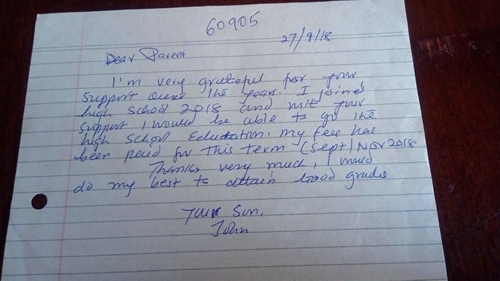 60905
27/9/18
Dear Parent
I'm very grateful for your
support over the year. I joined
high school 2018 and your
support I would be able to go the
high school Education. my fee has
been paid for this term (sept/Nov 2018.
Thanks very much, I
do my best to attain good grades
Your Son,
John